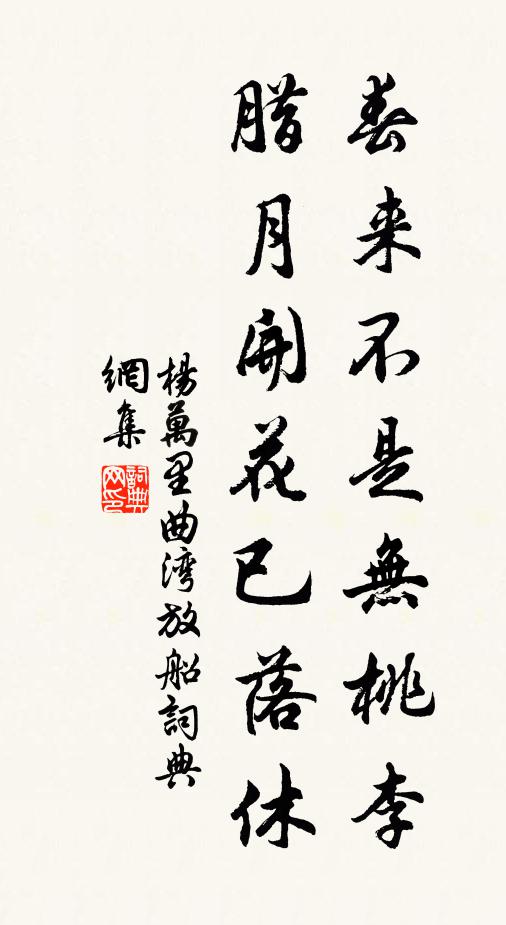 春来不是無桃李
腊月開花已落休
楊萬里曲湾放船詞典
網集
詞典
网印